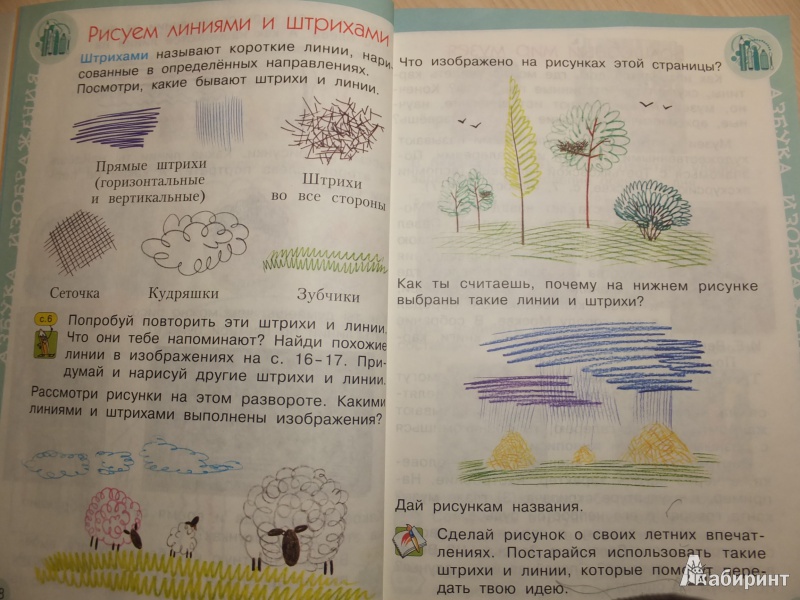 Рисуем линиями и штрихами
Штрихами называют короткие линии, нари-
сованные в определённых направлениях.
Посмотри, какие бывают штрихи и линии.
Прямые штрихи
(горизонтальные
и вертикальные)
Штрихи
во все стороны
Сеточка
Кудряшки
Зубчики
с.6
Попробуй повторить эти штрихи и линии.
Что они тебе напоминают? Найди похожие
линии в изображениях на с. 16–17. При-
думай и нарисуй другие штрихи и линии.
Рассмотри рисунки на этом развороте. Какими
линиями и штрихами выполнены изображения?
АЗБУКА ИЗОБРАЖЕНИЯ
8
Что изображено на рисунках этой страницы?
Как ты считаешь, почему на нижнем рисунке
выбраны такие линии и штрихи?
Дай рисункам названия.
Сделай рисунок о своих летних впечат-
лениях. Постарайся использовать такие
штрихи и линии, которые помогут пере-
дать твою идею.
АЗБУКА ИЗОБРА
Лабиринт